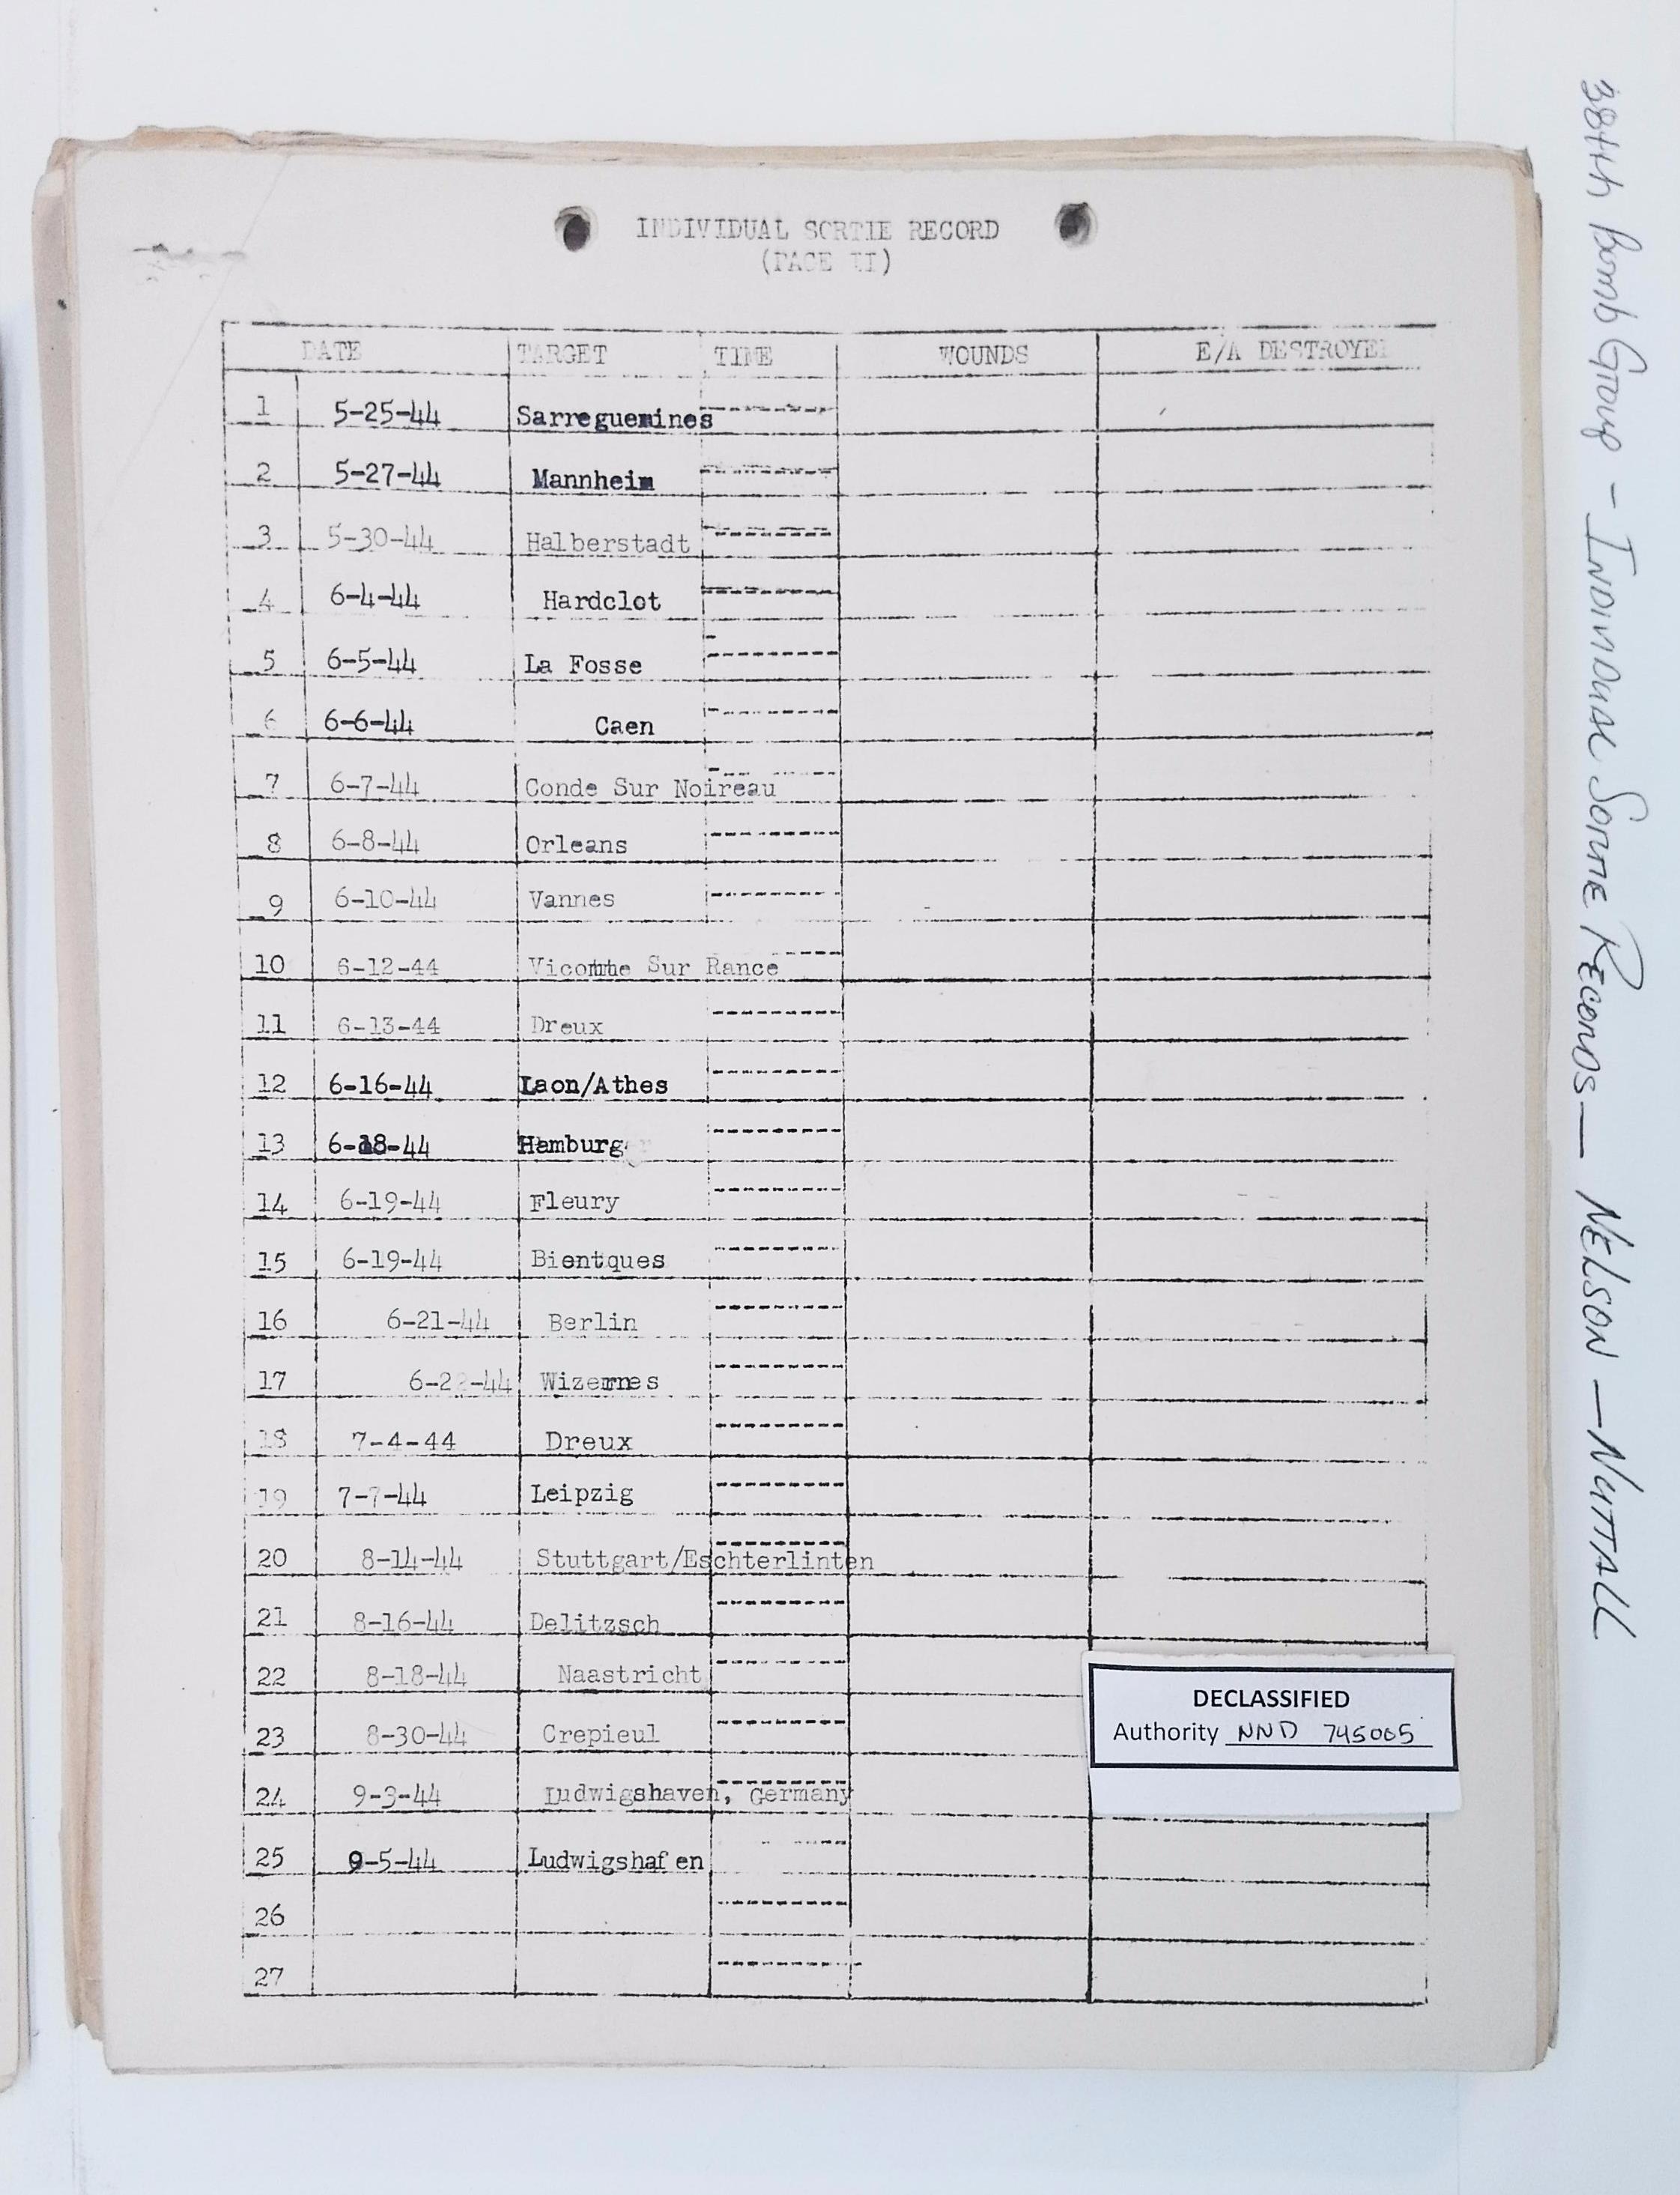 INDIVIDUAL SORTIE RECORD
(PAGE II)
DATE TARGET TIME WOUNDS E/A DESTROYED
1 5-25-44 Sarreguemines
2 5-27-44 Mannheim
3 5-30-44 Halberstadt
4 6-4-44 Hardclot
5 6-5-44 La Fosse
6 6-6-44 Caen
7 6-7-44 Conde Sur Noireau
8 6-8-44 Orleans
9 6-10-44 Vannes
10 6-12-44 Sur Rance
11 6-13-44 Dreux
12 6-16-44 Laon/Athes
13 6-18-44 Hamburg
14 6-19-44 Fleury
15 6-19-44 Bientques
16 6-21-44 Berlin
17 6-22-44 Wizernes
18 7-4-44 Dreux
19 7-7-44 Leipzig
20 8-14-44 Stuttgart/Eschterlinten
21 8-16-44 Delitzsch
22 8-18-44 Naastricht
23 8-30-44 Crepieul
24 9-3-44 Ludwigshaven, Germany
25 9-5-44 Ludwigshafen
26
27
DECLASSIFIED
Authority NND 745005
38th Bomb Group - Individual Sortie Records - NELSON - NUTTALL